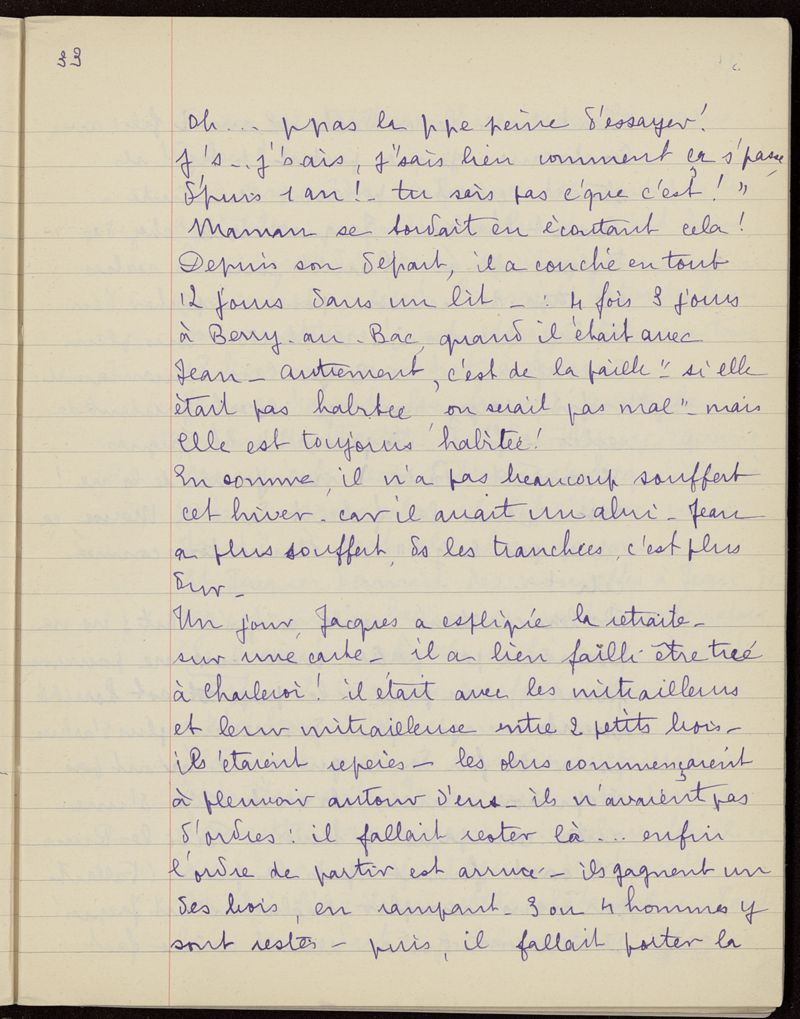 33
oh... ppas la ppe peine d'essayer!
j's... j'sais, j'sais bien comment ça s'passe
d'puis 1 an! - tu sais pas c'que c'est! "
Maman se tordait en écoutant cela!
Depuis son départ, il a couché en tout
12 jours dans un lit - : 4 fois 3 jours
à Berry-au-Bac, quand il était avec
Jean - autrement, c'est de la paille " si elle
était pas habitée on serait pas mal " - mais
elle est toujours habitée!
En somme, il n'a pas beaucoup souffert
cet hiver - car il avait un abri - Jean
a plus souffert, ds les tranchées, c'est plus
dur -
Un jour, Jacques a expliqué la retraite -
sur une carte - il a bien failli être tué
à Charleroi! il était avec les mitrailleurs
et leur mitrailleuse entre 2 petits bois -
ils étaient repérés - les obus commençaient
à pleuvoir autour d'eux - ils n'avaient pas
d'ordres : il fallait rester là... enfin
l'ordre de partir est arrivé - ils gagnent un
des bois, en rampant - 3 ou 4 hommes y
sont restés - puis, il fallait porter la